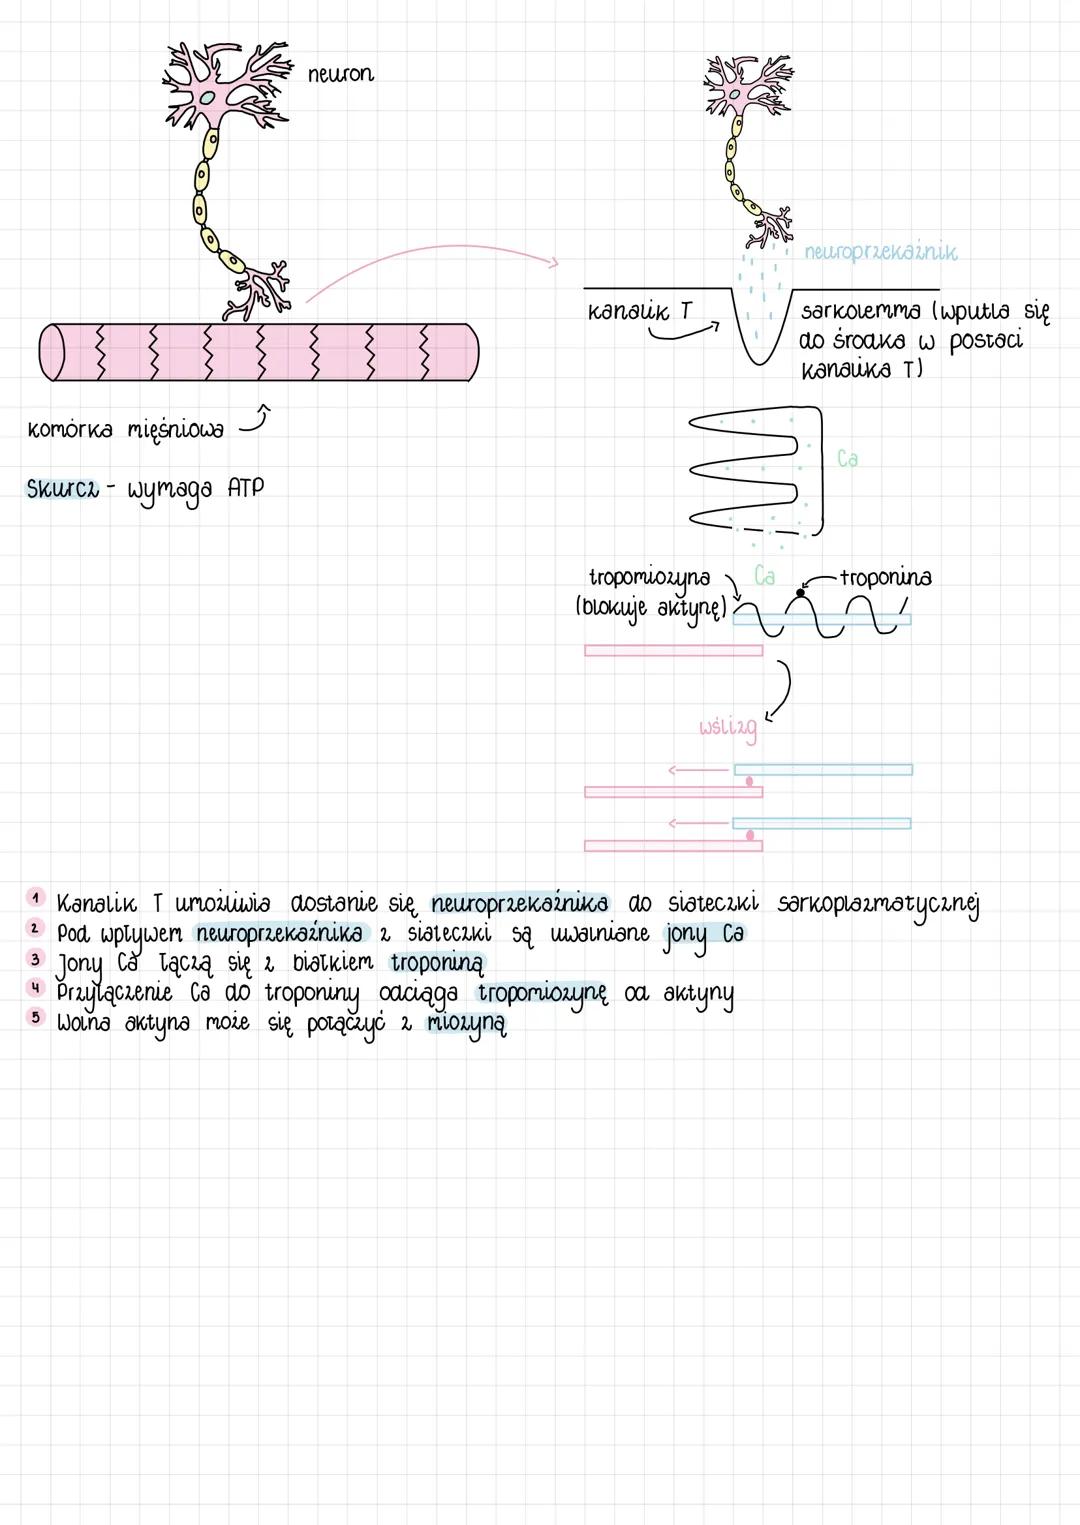 neuron
komórka mięśniowa
Skurcz - wymaga ATP
neuroprzekaźnik
kanalik T
sarkolemma (wpukla się
do środka w postaci
kanalika T)
Ca
Ca
tropomiozyna
(blokuje aktynę)
troponina
wślizg
1 Kanalik T umożliwia dostanie się neuroprzekaźnika do siateczki sarkoplazmatycznej
2 Pod wpływem neuroprzekaźnika z siateczki są uwalniane jony Ca
3 Jony Ca łączą się z białkiem troponiną
4 Przyłączenie Ca do troponiny odciąga tropomiozynę od aktyny
5 Wolna aktyna może się połączyć z miozyną